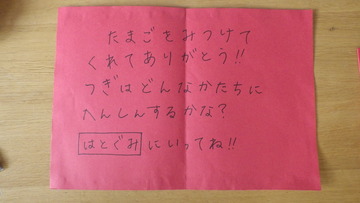 たまごをみつけて
くれてありがとう!!
つぎはどんなかたちに
へんしんするかな?
はとぐみにいってね!!